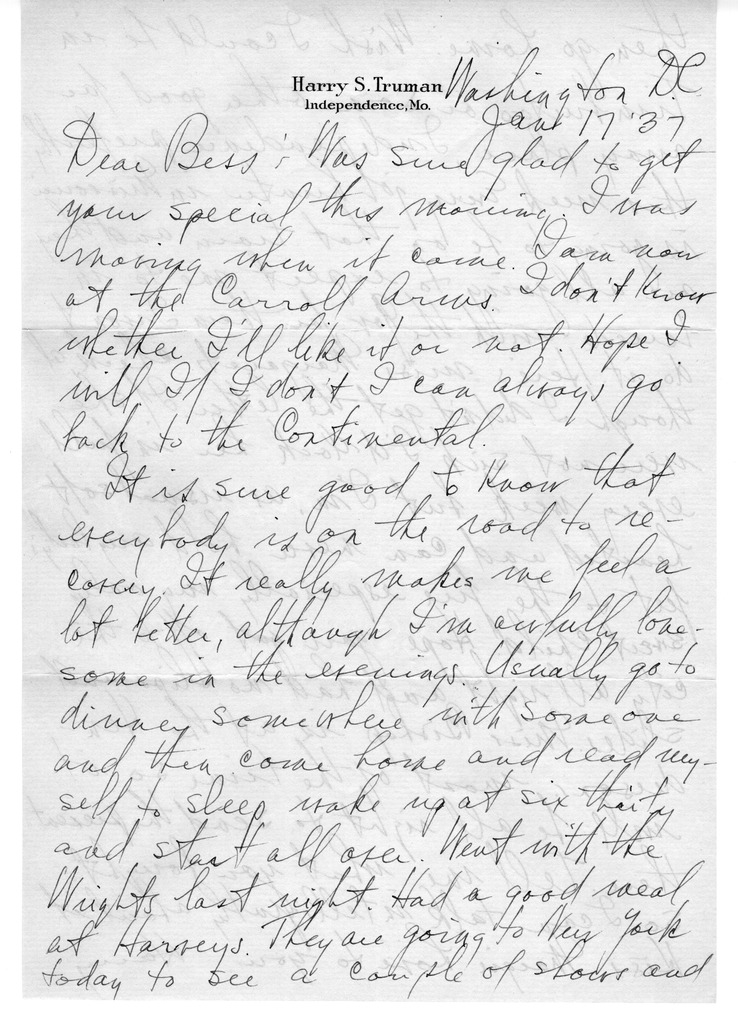 Harry S. Truman
Independence, Mo.
Washington DC
Jan 17 '37
Dear Bess: Was sure glad to get
your special this morning. I was
moving when it came. I am now
at the Carroll Arms. I don't know
whether I'll like it or not. Hope I
will. If I don't I can always go
back to the Continental.
It is sure good to know that
everybody is on the road to re-
covery. It really makes me feel a
lot better, although I'm awfully lone-
some in the evenings. Usually go to
dinner somewhere with someone
and then come home and read my-
self to sleep wake up at six thirty
and start all over. Went with the
Wrights last night. Had a good meal
at Harveys. They are going to New York
today to see a couple of shows and